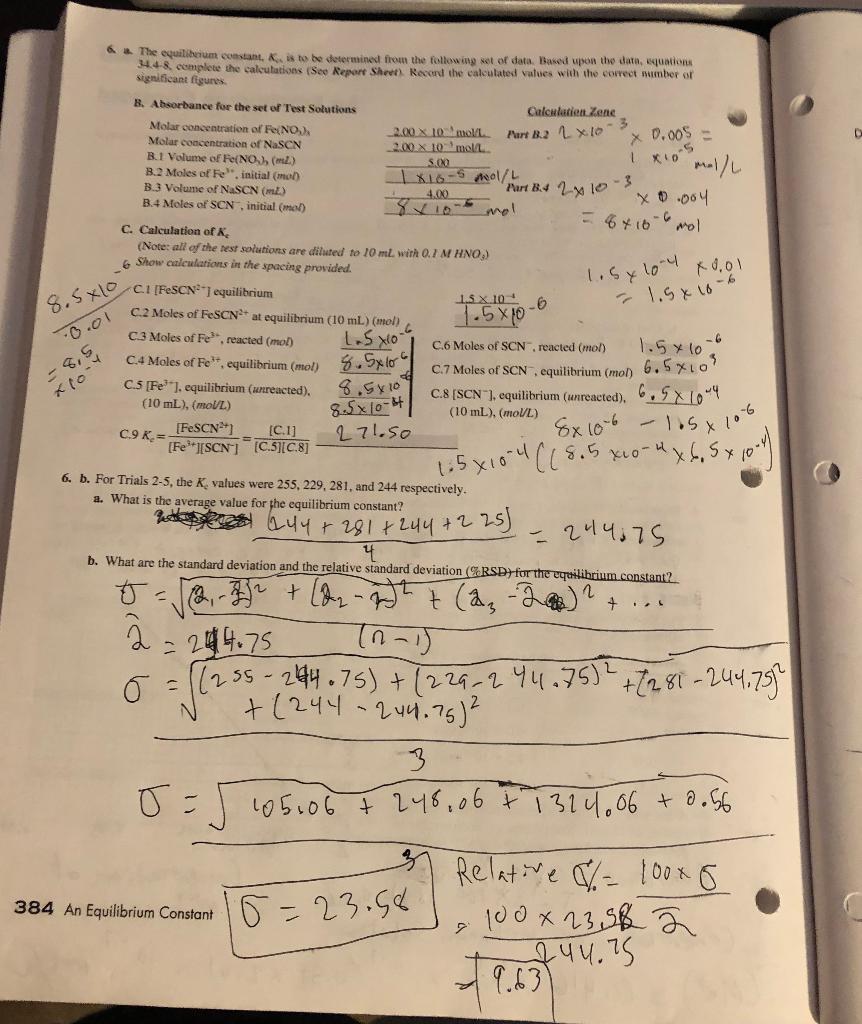 6. a. The equilibrium constant, Kc, is to be determined from the following set of data. Based upon the data, equations
34.4-8, complete the calculations (See Report Sheet). Record the calculated values with the correct number of
significant figures.
B. Absorbance for the set of Test Solutions
Calculation Zone
Molar concentration of Fe(NO₃)₃ 2.00 × 10⁻³ mol/L Part B.2 2 x 10⁻³ x 0.005 =
Molar concentration of NaSCN 2.00 × 10⁻³ mol/L 1 x 10⁻⁵ mol/L
B.1 Volume of Fe(NO₃)₃ (mL) 5.00
B.2 Moles of Fe³⁺, initial (mol) 1 x 10⁻⁵ mol/L
B.3 Volume of NaSCN (mL) 4.00 Part B.4 2x 10⁻³ x 0.004
B.4 Moles of SCN⁻, initial (mol) 8 x 10⁻⁶ mol = 8 x 10⁻⁶ mol
C. Calculation of Kc
(Note: all of the test solutions are diluted to 10 mL with 0.1 M HNO₃)
Show calculations in the spacing provided.
8.5x10⁻⁶
0.01
= 8.5 x10⁻⁴
1.5 x 10⁻⁴ x 0.01
= 1.5 x 10⁻⁶
C.1 [FeSCN²⁺] equilibrium 1.5 × 10⁻⁴
C.2 Moles of FeSCN²⁺ at equilibrium (10 mL) (mol) 1.5 x 10⁻⁶
C.3 Moles of Fe³⁺, reacted (mol) 1.5 x10⁻⁶
C.4 Moles of Fe³⁺, equilibrium (mol) 8.5x10⁻⁶
C.5 [Fe³⁺], equilibrium (unreacted), 8.5x10
(10 mL), (mol/L) 8.5x10⁻⁴
C.6 Moles of SCN⁻, reacted (mol) 1.5 x 10⁻⁶
C.7 Moles of SCN⁻, equilibrium (mol) 6.5x10
C.8 [SCN⁻], equilibrium (unreacted), 6.5x10⁻⁴
(10 mL), (mol/L)
8x 10⁻⁶ - 1.5 x 10⁻⁶
C.9 Kc = [FeSCN²⁺] / [Fe³⁺][SCN⁻] = [C.1] / [C.5][C.8] 271.50
1.5 x10⁻⁴ ((8.5 x10⁻⁴ x 6.5 x 10⁻⁴)
6. b. For Trials 2-5, the Kc values were 255, 229, 281, and 244 respectively.
a. What is the average value for the equilibrium constant?
(244 + 281 + 244 + 225) = 244.75
4
b. What are the standard deviation and the relative standard deviation (%RSD) for the equilibrium constant?
σ = √(2₁ - 2̄)² + (2₂ - 2̄)² + (2₃ - 2̄)² + ...
(n-1)
2̄ = 244.75
σ = √(255 - 244.75) + (229 - 244.75)² + (281 - 244.75)²
+ (244 - 244.75)²
3
σ = √105.06 + 248.06 + 1314.06 + 0.56
3
σ = 23.58
Relative σ% = 100 x σ
2̄
= 100 x 23.58
244.75
= 9.63
384 An Equilibrium Constant